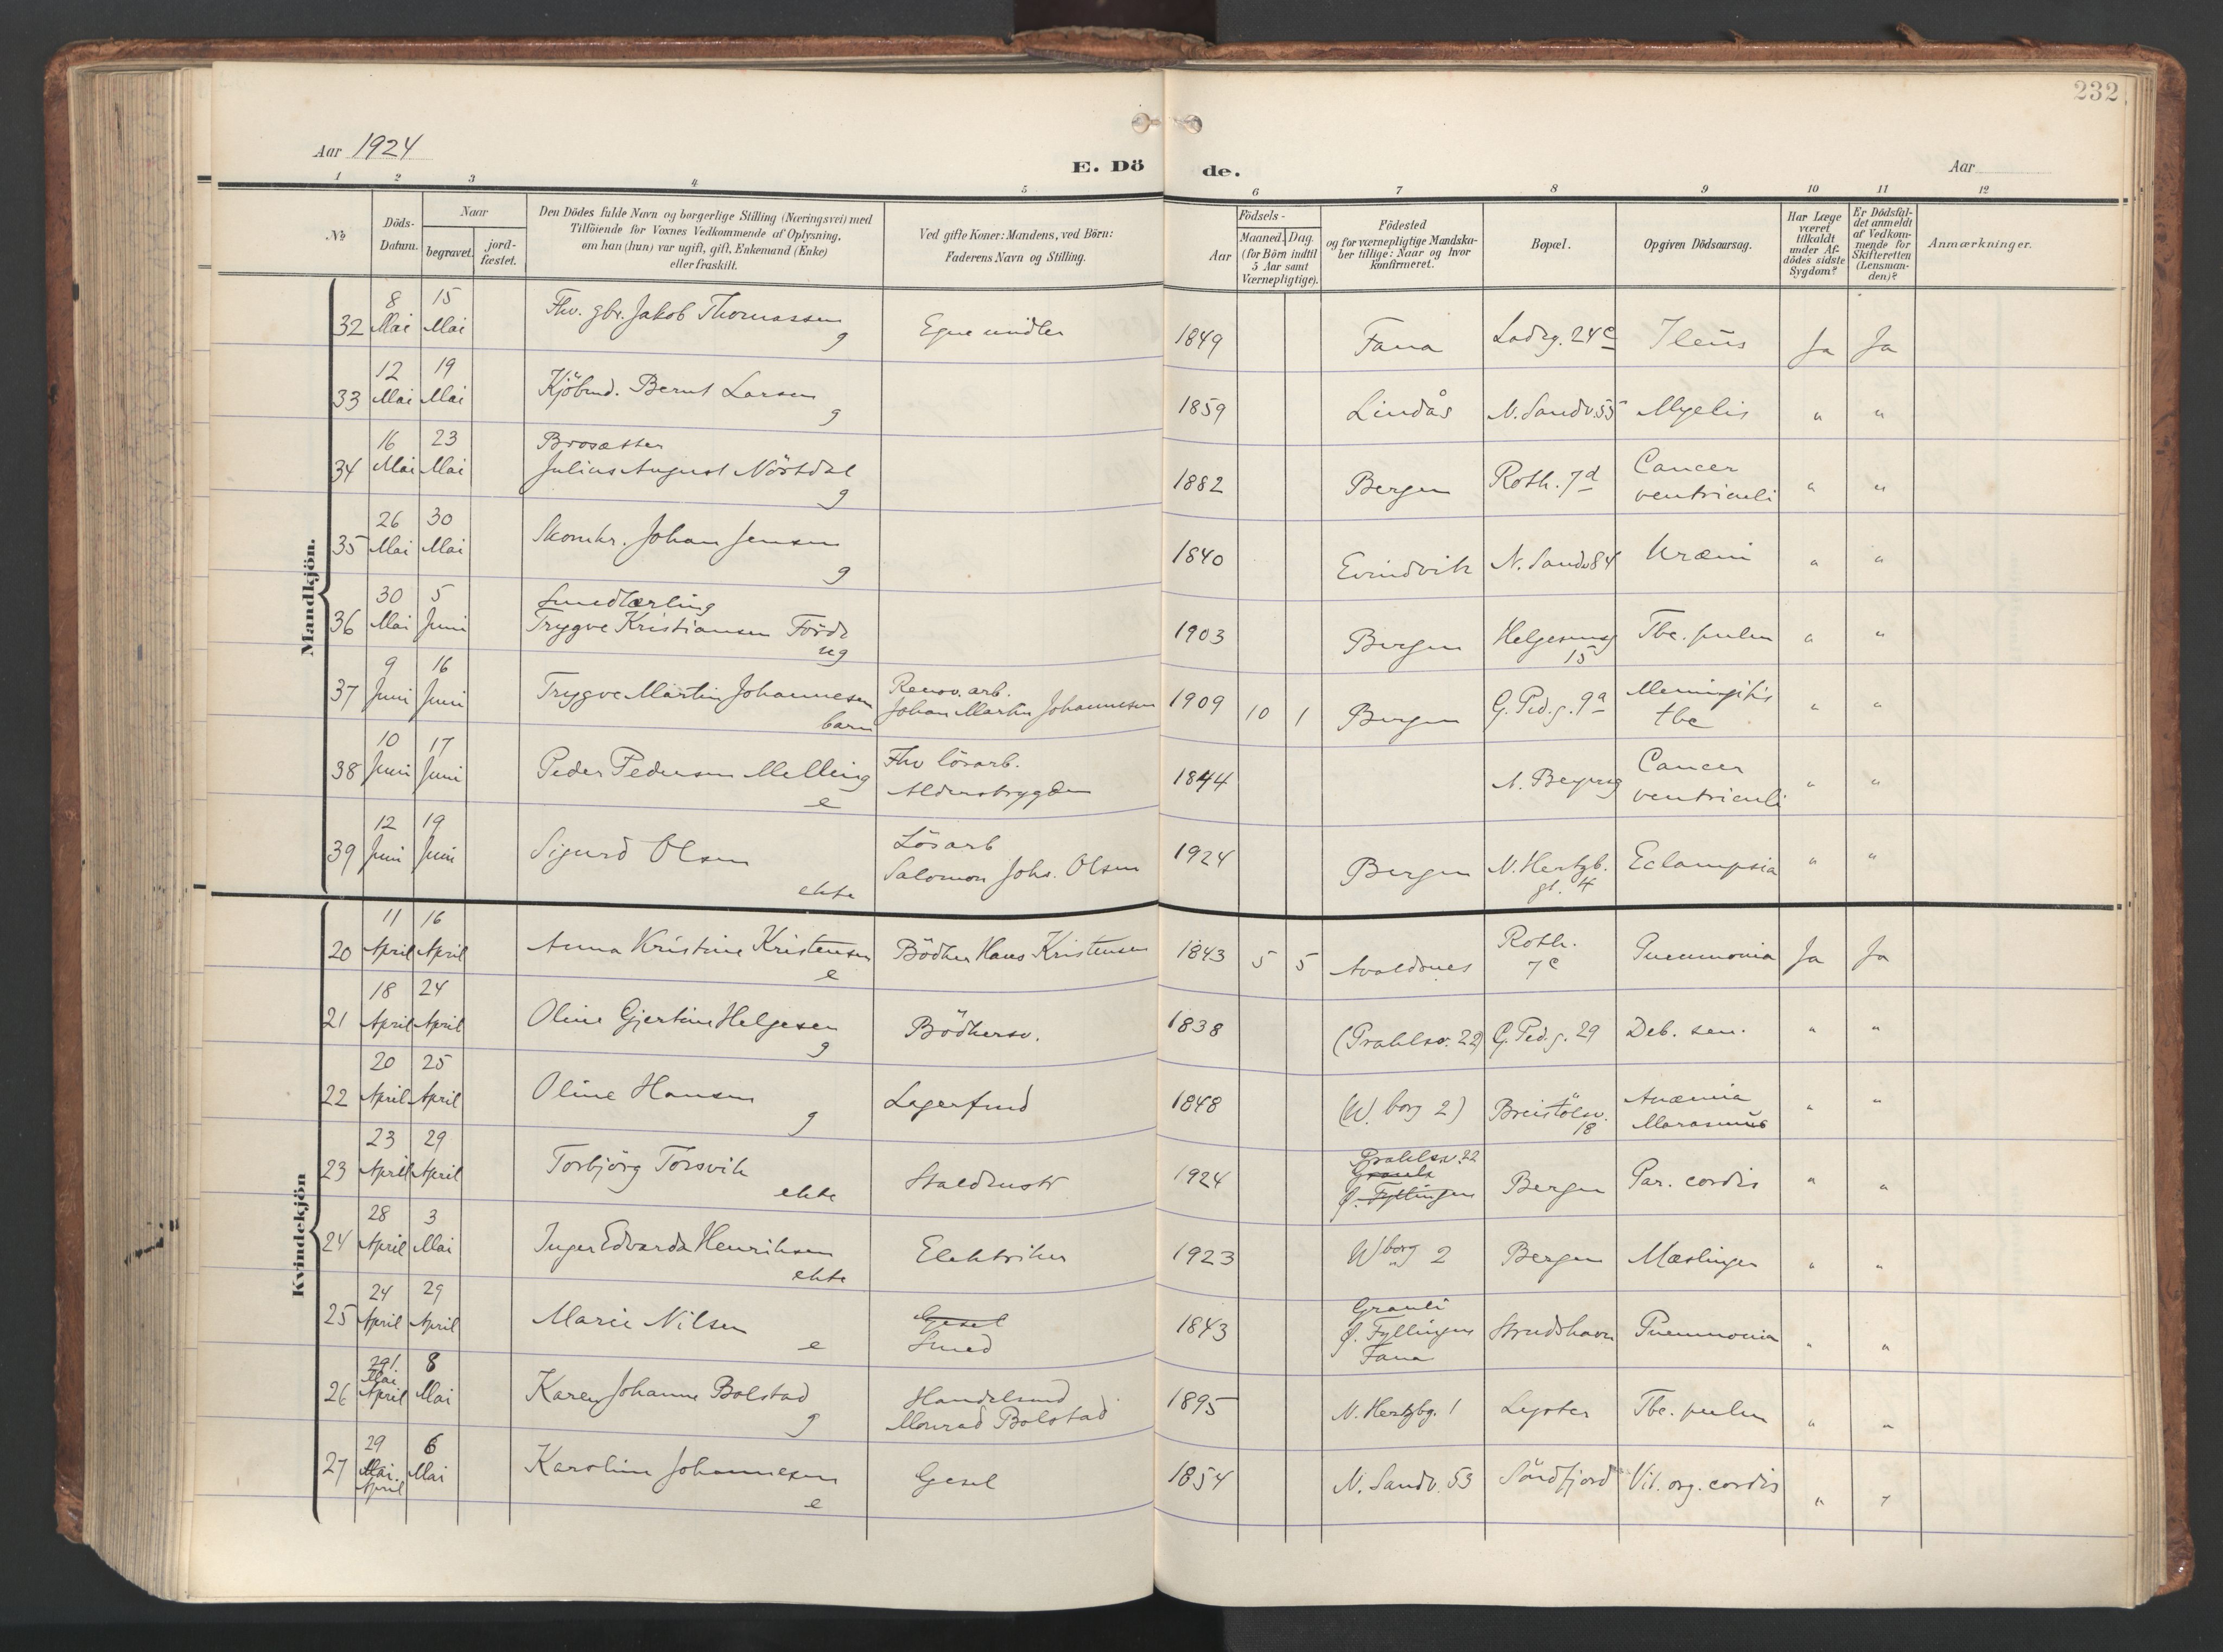 232
Aar 1924
E. Dö de.
Aar
1 2 3 4 5 6 7 8 9 10 11 12
No
Döds-Datum.
Naar
begravet.
jord-fæstet.
Den Dödes fulde Navn og borgerlige Stilling (Næringsvei) med
Tilföiende for Voxnes Vedkommende af Oplysning,
om han (hun) var ugift, gift, Enkemand (Enke)
eller fraskilt.
Ved gifte Koner: Mandens, ved Börn:
Faderens Navn og Stilling.
Födsels-
Aar
Maaned. Dag.
(for Börn indtil
5 Aar samt
Værnepligtige).
Födested
og for værnepligtige Mandska-
ber tillige: Naar og hvor
konfirmeret.
Bopæl.
Opgiven Dödsaarsag.
Har Læge
været
tilkaldt
under Af-
dödes sidste
Sygdom?
Er Dödsfal-
det anmeldt
af Vedkom-
mende for
Skifteretten
(Lensman-
den)?
Anmærkninger.
Mandkjön.
32 8 Mai 15 Mai Fhv. gbr. Jakob Thomassen g Egne midler 1849 Fana Ladeg. 24c Ileus Ja Ja
33 12 Mai 19 Mai Kjöbmd. Bernt Larsen g 1859 Lindås N. Sandv. 55 Myelis " "
34 16 Mai 23 Mai Brosætter
Julius August Nörtdal g 1882 Bergen Roth. 7d Cancer
ventriculi " "
35 26 Mai 30 Mai Skomkr. Johan Jensen g 1840 Evindvik N. Sandv 84 Uræmi " "
36 30 Mai 5 Juni Smedlærling
Trygve Kristiansen Förde ug 1903 Bergen Helgesensg
15 Tbc. pulm " "
37 9 Juni 16 Juni Trygve Martin Johannesen barn Renov. arb.
Johan Martin Johannesen 1909 10 1 Bergen G. Ped. g. 9a Meningitis
tbc " "
38 10 Juni 17 Juni Peder Pedersen Melling e Fhv lösarb.
Alderstrygden 1844 N. Cancer
ventriculi " "
39 12 Juni 19 Juni Sigurd Olsen ekte Lösarb
Salomon Johs. Olsen 1924 Bergen N. Hertzb.
gt. 4 Eclampsia " "
Kvindekjön
20 11 April 16 April Anna Kristine Kristensen e Bödker Hans Kristensen 1843 5 5 Avaldsnes Roth.
7c Pneumonia Ja Ja
21 18 April 24 April Oline Gjertine Helgesen g Bödkersv. 1838 (Prahlsv. 22) G. Ped. g. 29 Deb. sen. " "
22 20 April 25 April Oline Hansen g Lagerfmd 1848 (W. borg 2) Breistölsv.
18 Anæmia
Marasmus " "
23 23 April 29 April Torbjörg Torsvik ekte Staldmstr 1924 Prahlsv. 22
Grauli
Ø. Fyllingen Bergen Par. cordis " "
24 28 April 3 Mai Inger Edvarda Henriksen ekte Elektriker 1923 Wborg 2 Bergen Mæslinger " "
25 24 April 29 April Marie Nilsen e Gesel
Smed 1843 Grauli
Ø. Fyllingen
Fana Strudshavn Pneumonia " "
26 29 1. Mai April 8 Mai Karen Johanne Bolstad g Handelsmd
Monrad Bolstad 1895 N. Hertzbg. 1 Lyster Tbc. pulm " "
27 29 Mai. April 6 Mai Karoline Johannesen e Gesel 1854 N. Sandv. 53 Söndfjord Vit. org. cordis " "